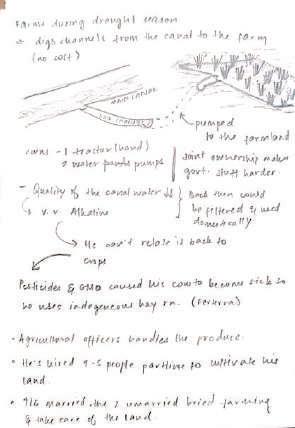 Farms during drought season
→ digs channels from the canal to the farm
(no cost)
MAIN CANAL
SUB CANAL
pumped
to the farmland
owns - 1 tractor (hand)
2 water pumps
Joint ownership makes
govt. stuff harder.
- Quality of the canal water ↓↓
→ v.v. Alkaline
Back then could
be filtered & used
domestically
→ He can't release it back to
crops
Pesticides & GMO caused his cows to become sick so
he uses indigenous hay rn.
• Agricultural officers handles the produce.
• He's hired 4-5 people part time to cultivate his
land.
married, the 2 unmarried tried farming
& take care of the land.